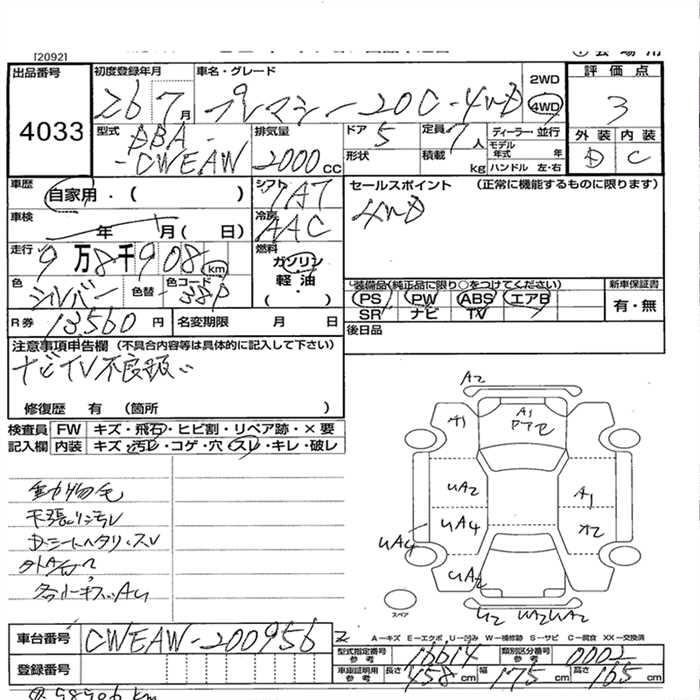 [2092]
出品番号 4033
初度登録年月 26年 7月
車名・グレード プレマシー 20C-4WD
2WD
4WD
評価点 3
外装 D 内装 C
型式 DBA-CWEAW
排気量 2000cc
ドア 5
形状
定員 7人
積載 kg
ディーラー・並行
モデル年式 年
ハンドル 左・右
車歴 自家用・( )
シフト 7AT
セールスポイント (正常に機能するものに限ります)
4WD
車検 年 月( 日)
冷房 AAC
走行 9万8千908km
燃料 ガソリン
軽油
( )
色 シルバー 色替 色コード 38P
装備品(純正品に限り○をつけてください)
PS PW ABS エアB
SR ナビ TV
新車保証書
有・無
R券 13560円
名変期限 月 日
後日品
注意事項申告欄 (不具合内容等は具体的に記入して下さい)
ナビTV不良扱い
修復歴 有 (箇所 )
検査員 FW キズ・飛石・ヒビ割・リペア跡・×要
記入欄 内装 キズ・汚レ・コゲ・穴・スレ・キレ・破レ
動物毛
天張リ汚レ
Dシートヘタリ・スレ
A2
A1
A1
UA2
UA4
UA4
UA2
A1
U2 WA2 WA2
スペア
A-キズ E-エクボ U-凹み W-補修跡 S-サビ C-腐食 XX-交換済
車台番号 CWEAW-200956
登録番号
型式指定番号 参考 16614
類別区分番号 参考 0002
車庫証明用 参考 長さ 458cm 幅 175cm 高さ 165cm